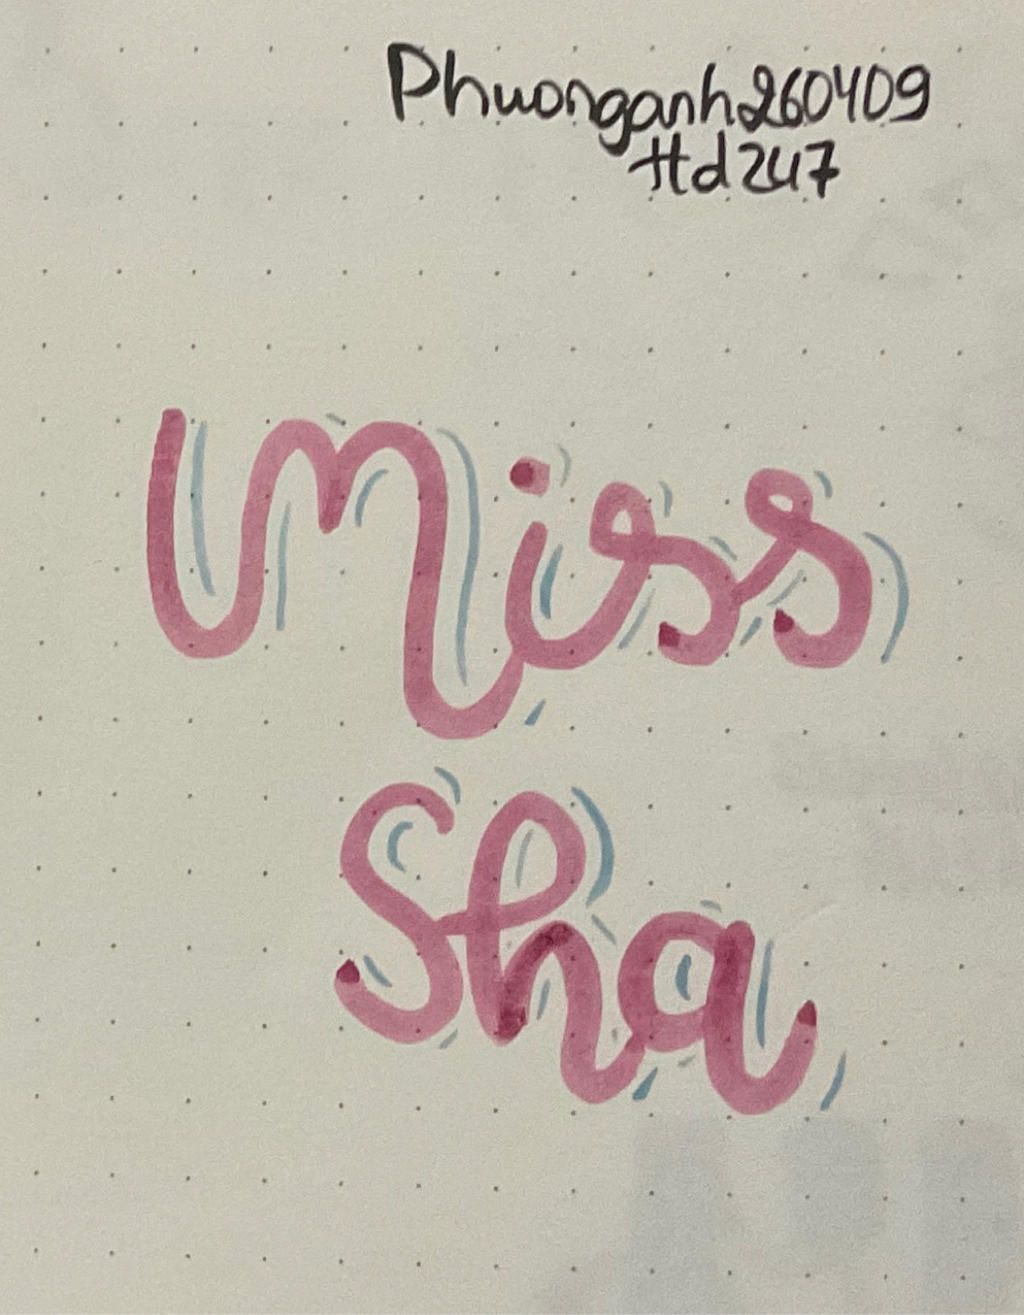 Phuonganh260409
Hd247
Miss
Sha